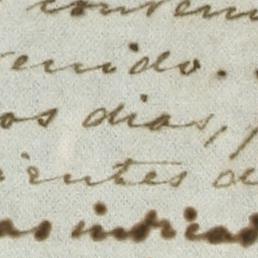 conveni
tenido.
os dias,
rientes d
as indicad